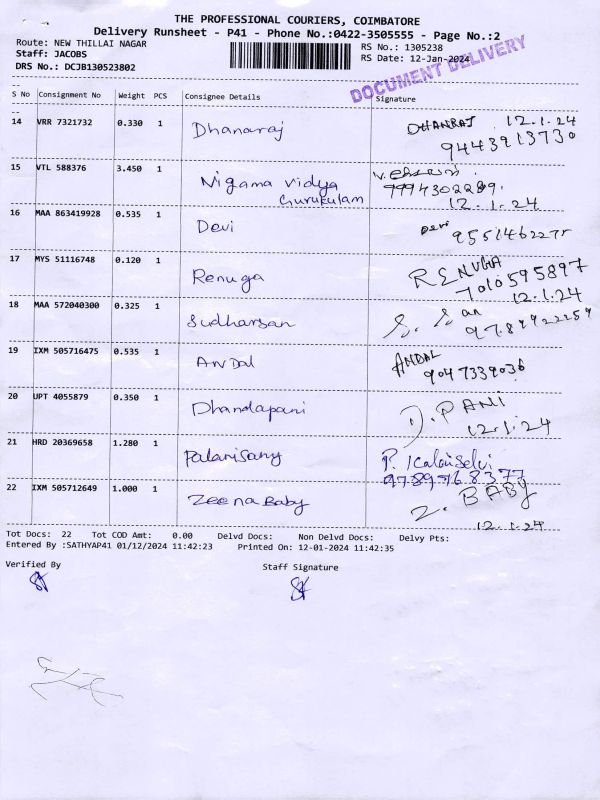 THE PROFESSIONAL COURIERS, COIMBATORE
Delivery Runsheet - P41 - Phone No.:0422-3505555 - Page No.:2
Route: NEW THILLAI NAGAR RS No.: 1305238
Staff: JACOBS RS Date: 12-Jan-2024
DRS No.: DCJB130523802
DOCUMENT DELIVERY
S No Consignment No Weight PCS Consignee Details Signature
14 VRR 7321732 0.330 1 Dhanaraj DHANRAJ 12.1.24
9443913730
15 VTL 588376 3.450 1 Nigama Vidya
Gurukulam
12.1.24
16 MAA 863419928 0.535 1 Devi Devi
17 MYS 51116748 0.120 1 Renuga RENUGA
7010595897
12.1.24
18 MAA 572040300 0.325 1 Sudharsan
19 IXM 505716475 0.535 1 Andal ANDAL
9047339036
20 UPT 4055879 0.350 1 Dhandapani D.PANI
12.1.24
21 HRD 20369658 1.280 1 Palanisamy P. Kalaiselvi
9789768377
22 IXM 505712649 1.000 1 Zeena Baby Z. BABY
12.1.24
Tot Docs: 22 Tot COD Amt: 0.00 Delvd Docs: Non Delvd Docs: Delvy Pts:
Entered By :SATHYAP41 01/12/2024 11:42:23 Printed On: 12-01-2024 11:42:35
Verified By Staff Signature